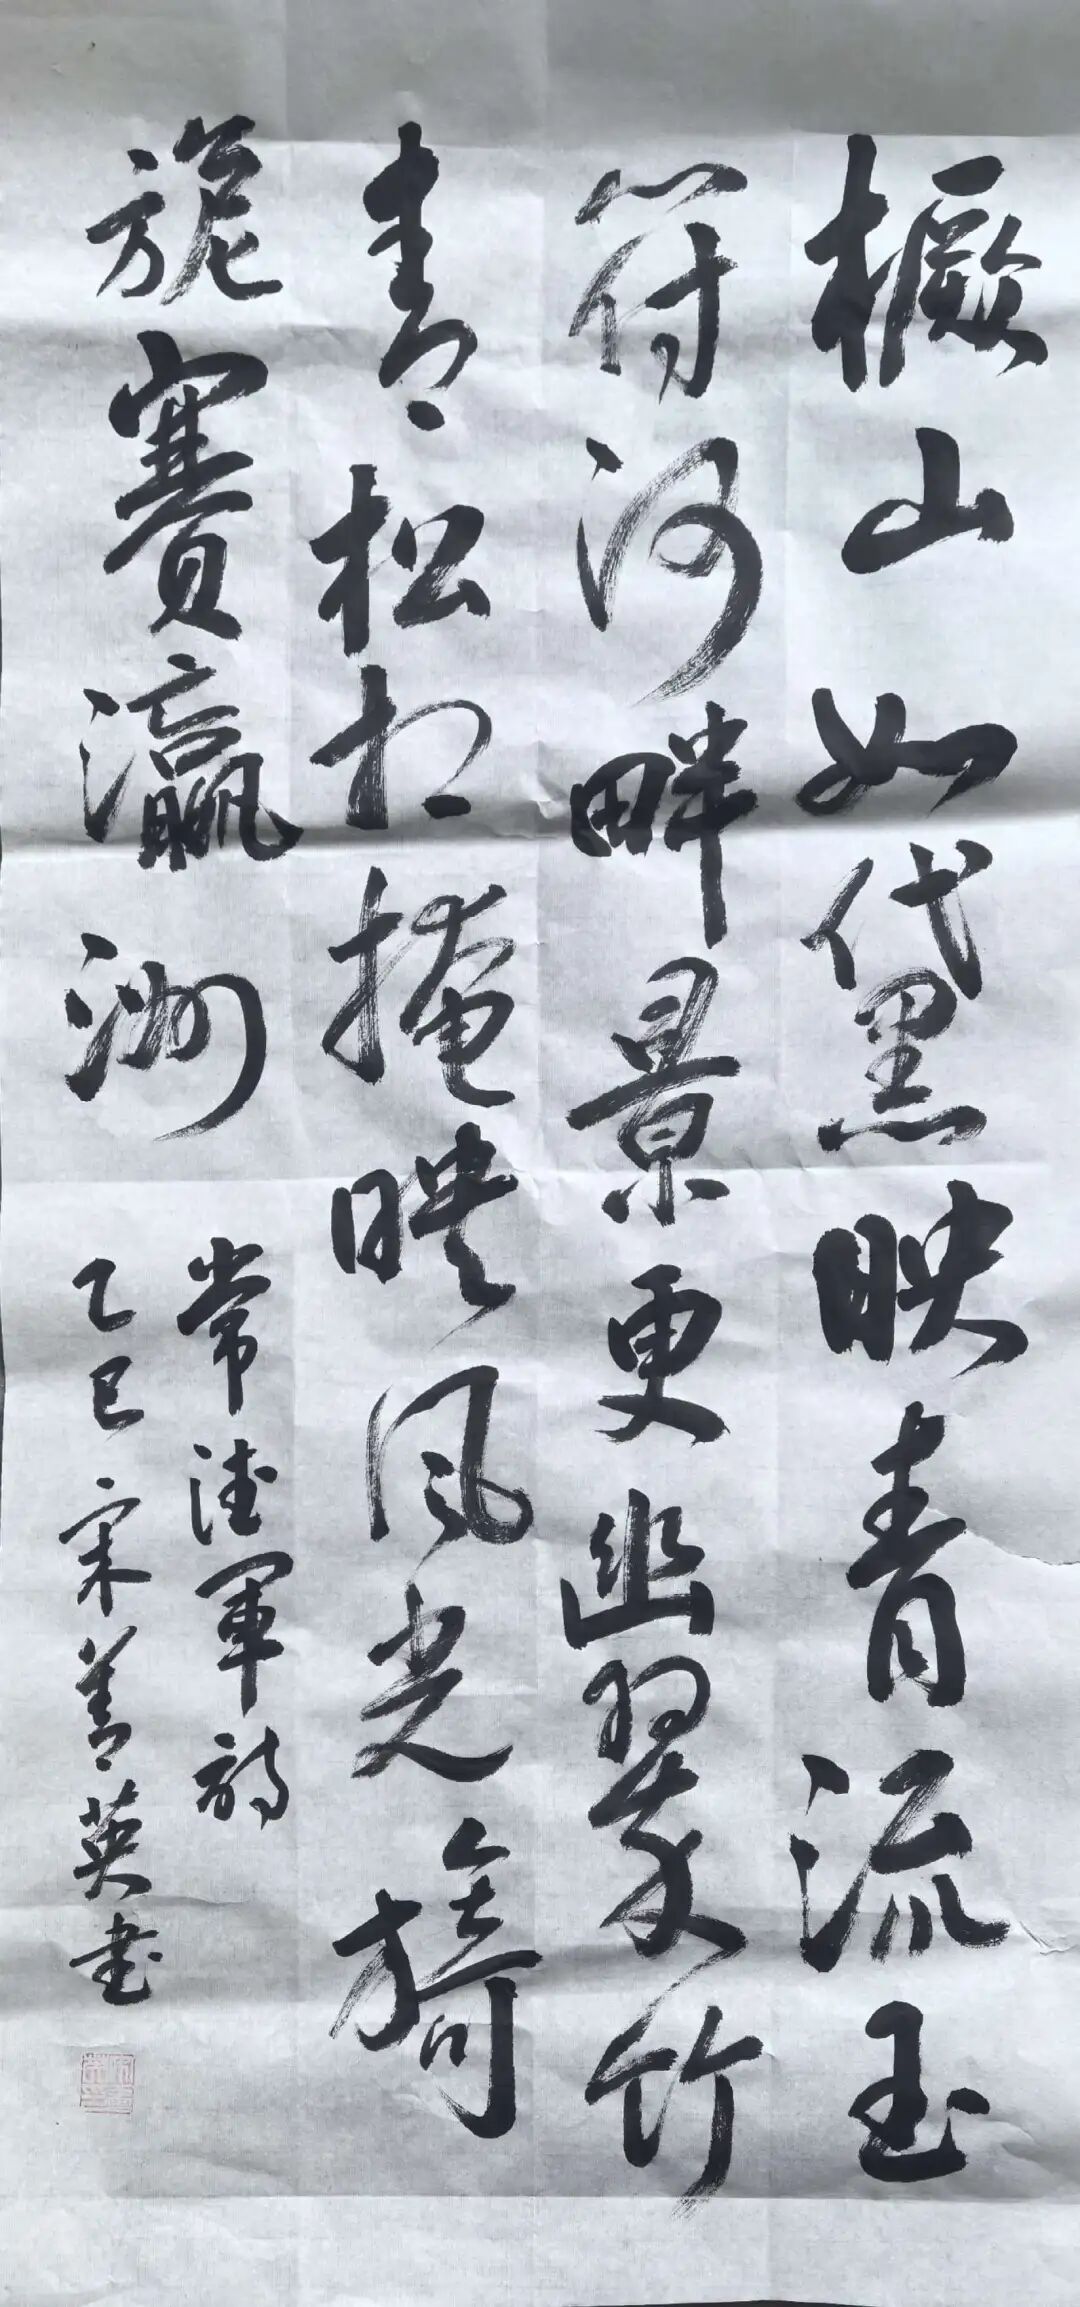 橛山如黛映青流玉
符河畔景更幽翠竹
青松相掩映风光旖
旎赛瀛洲
常陆军诗
乙巳宋善英书